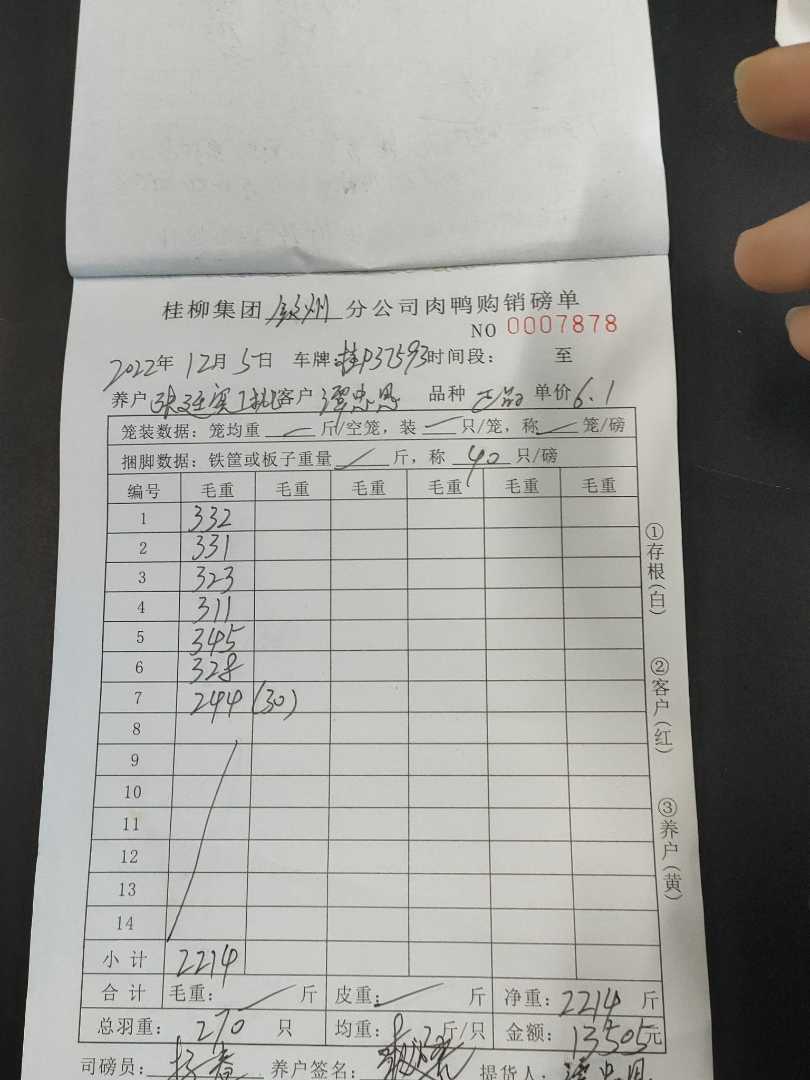 桂柳集团 钦州 分公司肉鸭购销磅单
NO 0007878
2022年 12月 5日 车牌:桂P37593时间段: 至
养户 客户 谭忠恩 品种 正品 单价6.1
笼装数据:笼均重 斤/空笼,装 只/笼,称 笼/磅
捆脚数据:铁筐或板子重量 斤,称 40 只/磅
编号 毛重 毛重 毛重 毛重 毛重 毛重
1 332
2 331
3 323
4 311
5 345
6 328
7 244 (30)
8
9
10
11
12
13
14
小计 2214
合计 毛重: 斤 皮重: 斤 净重:2214 斤
总羽重: 270 只 均重:8.2斤/只 金额:13505元
司磅员: 养户签名: 提货人: 谭忠恩
①存根(白)
②客户(红)
③养户(黄)